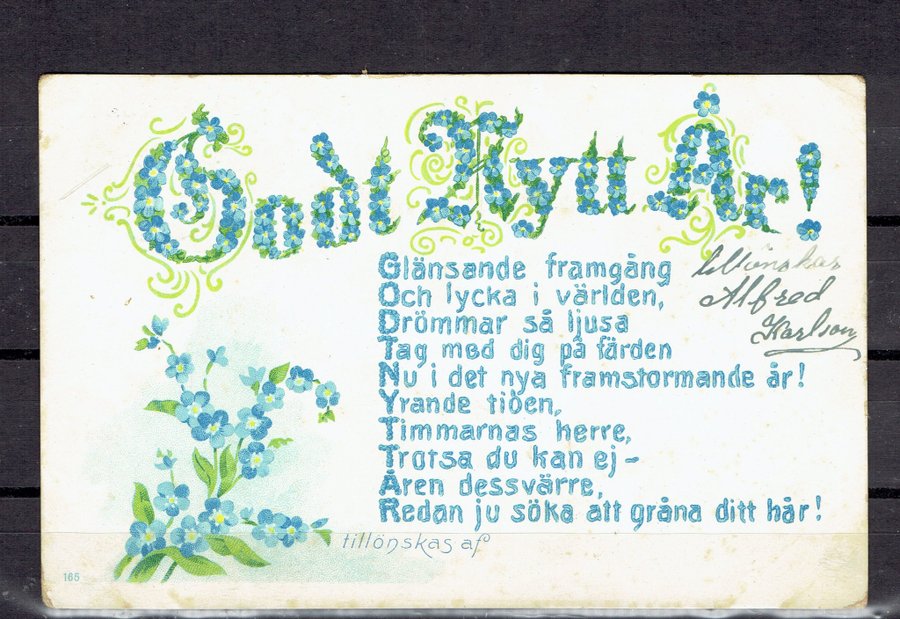 Godt Nytt År!
Glänsande framgång
Och lycka i världen,
Drömmar så ljusa
Tag med dig på färden
Nu i det nya framstormande år!
Yrande tiden,
Timmarnas herre,
Trotsa du kan ej –
Åren dessvärre,
Redan ju söka att gråna ditt hår!
tillönskas af
tillönskas
Alfred
Karlson
165